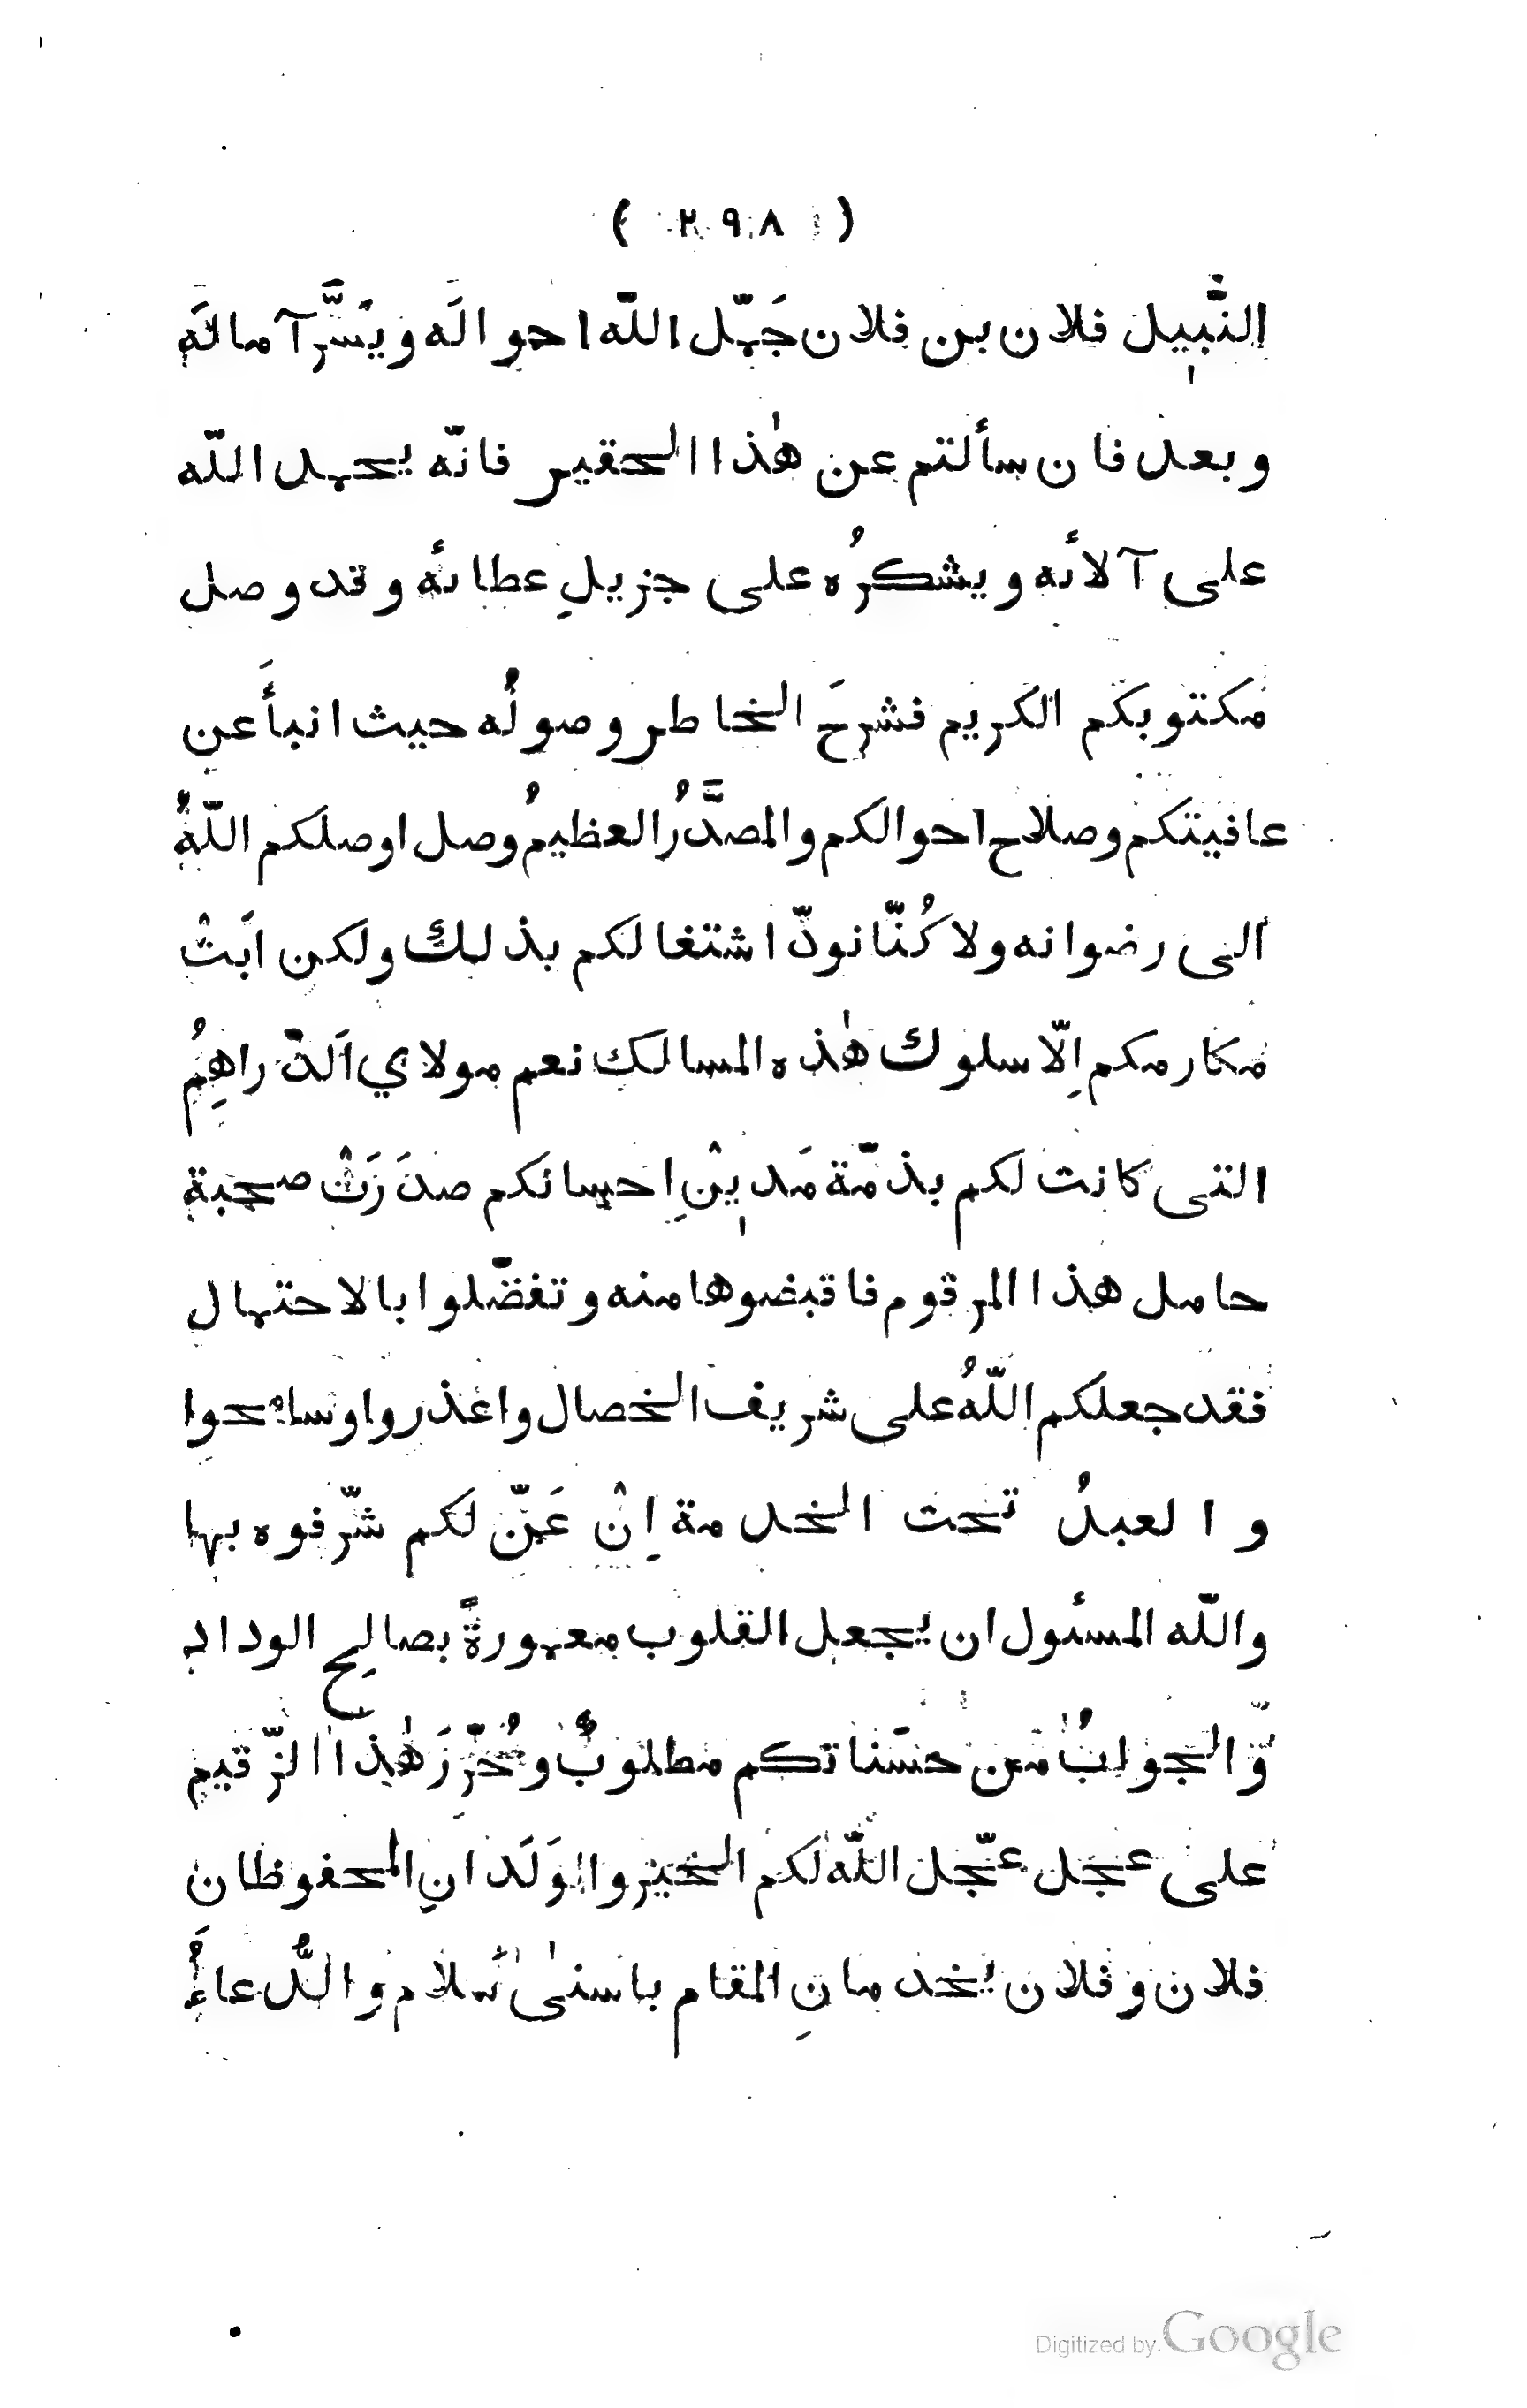 ( ٢٩٨ )
النّبيل فلان بن فلان جَمّل اللّه احوالَه ويسَّر آمالَه
وبعد فان سألتم عن هٰذا الحقير فانّه يحمد اللّه
على آلائه ويشكرُه على جزيلِ عطائه وقد وصل
مكتوبكم الكريم فشرحَ الخاطر وصولُه حيث انبأَ عن
عافيتكم وصلاح احوالكم والمصدَّرُ العظيمُ وصل اوصلكم اللّهُ
الى رضوانه ولا كُنّا نودّ اشتغالكم بذلك ولكن ابَتْ
مكارمكم اِلّا سلوك هٰذه المسالك نعم مولاي الدّراهِمُ
التى كانت لكم بذمّة مَديْنِ احسانكم صدَرَتْ صحبة
حامل هذا المرقوم فاقبضوها منه وتفضّلوا بالاحتمال
فقد جعلكم اللّهُ على شريف الخصال واعذروا وسامحوا
والعبدُ تحت الخدمة اِنْ عَنّ لكم شرّفوه بها
واللّه المسئول ان يجعل القلوب معمورةً بصالح الوداد
والجوابُ من حسَناتكم مطلوبٌ وحُرِّرَ هٰذا الرّقيم
على عجل عجّل اللّه لكم الخير والوَلَدانِ المحفوظان
فلان وفلان يخدمانِ المقام باسنىٰ سلام والدُّعاءُ
Digitized by Google